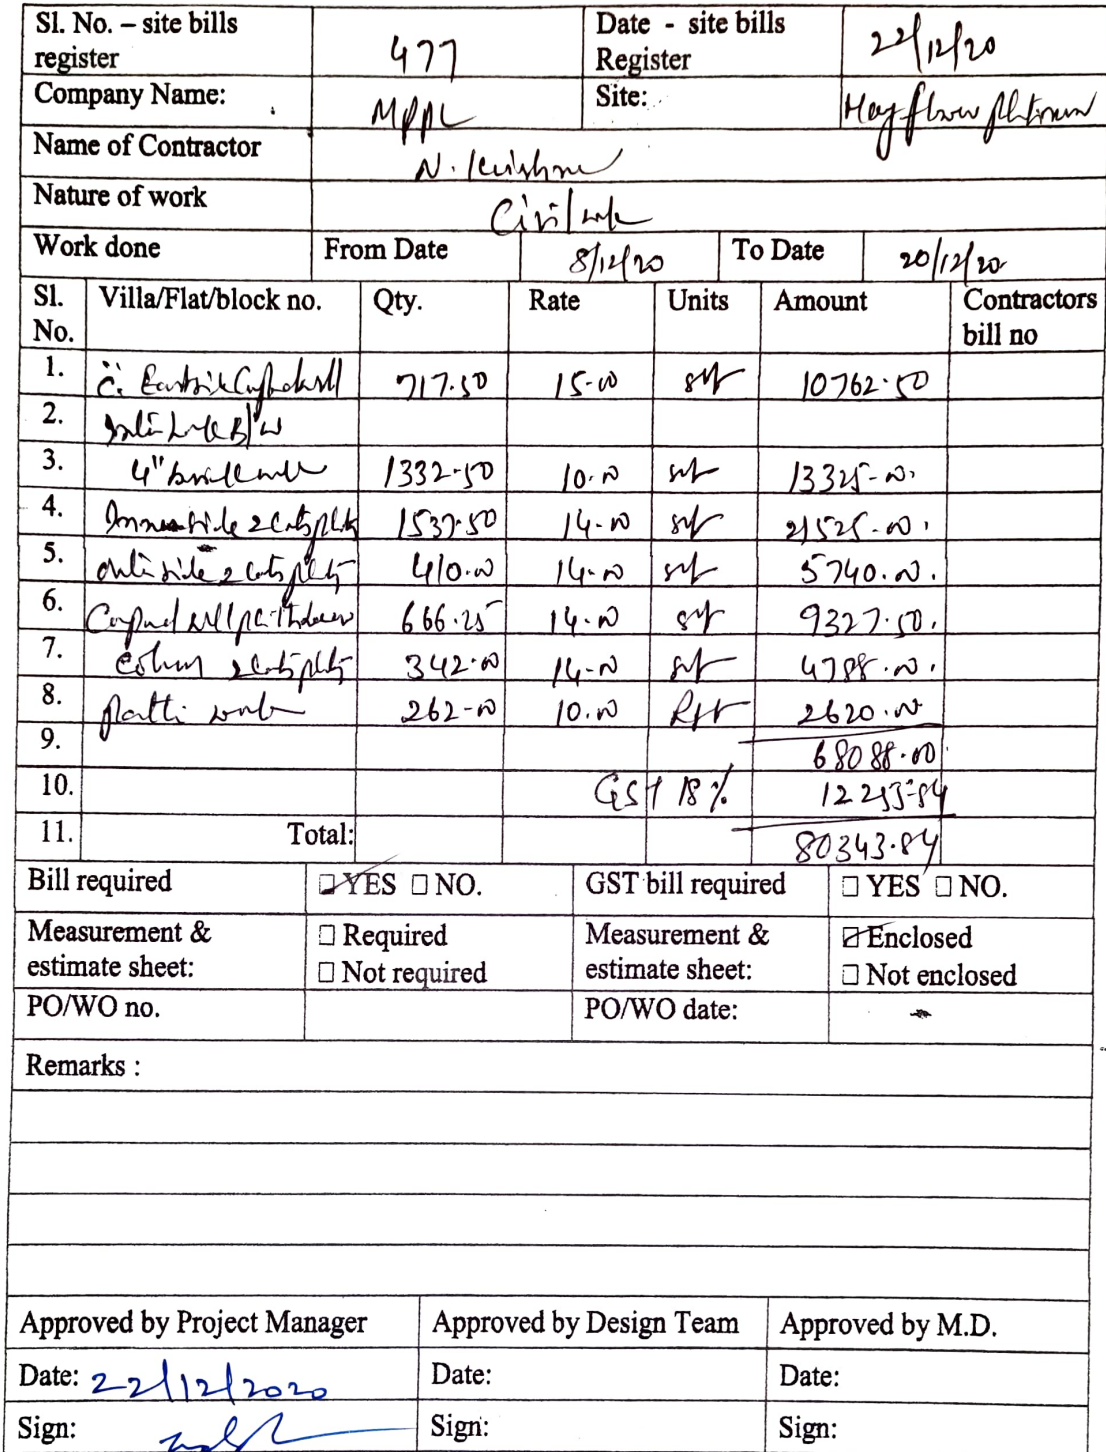 Sl. No. – site bills register 477 Date - site bills Register 22/12/20
Company Name: MPPL Site: Mayflower Platinum
Name of Contractor N. Krishna
Nature of work Civil work
Work done From Date 8/12/20 To Date 20/12/20
Sl. No. Villa/Flat/block no. Qty. Rate Units Amount Contractors bill no
1. 717.50 15-00 sft 10762.50
2.
3. 4" brick work 1332-50 10.00 sft 13325-00
4. side 2 coats 1537.50 14-00 sft 21525-00
5. side 2 coats 410.00 14-00 sft 5740.00
6. 666.25 14.00 sft 9327.50
7. 2 coats 342.00 14-00 sft 4788.00
8. Patti work 262-00 10.00 Rft 2620.00
9. 68088.00
10. GST 18% 12255-84
11. Total: 80343.84
Bill required ☑ YES ☐ NO. GST bill required ☐ YES ☐ NO.
Measurement & estimate sheet: ☐ Required ☐ Not required Measurement & estimate sheet: ☑ Enclosed ☐ Not enclosed
PO/WO no. PO/WO date:
Remarks :
Approved by Project Manager Approved by Design Team Approved by M.D.
Date: 22/12/2020 Date: Date:
Sign: Sign: Sign: